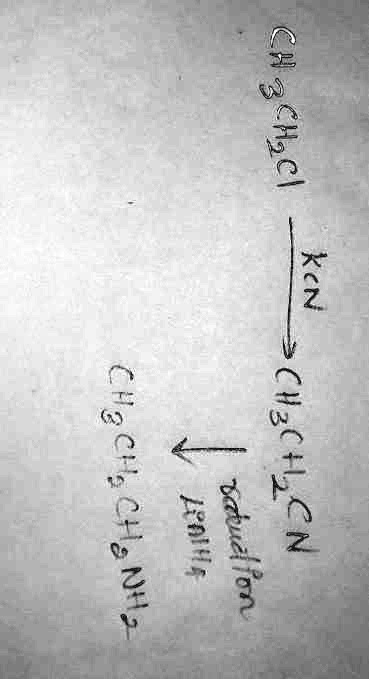 CH3CH2Cl KCN CH3CH2CN
reduction
LiAlH4
CH3CH2CH2NH2